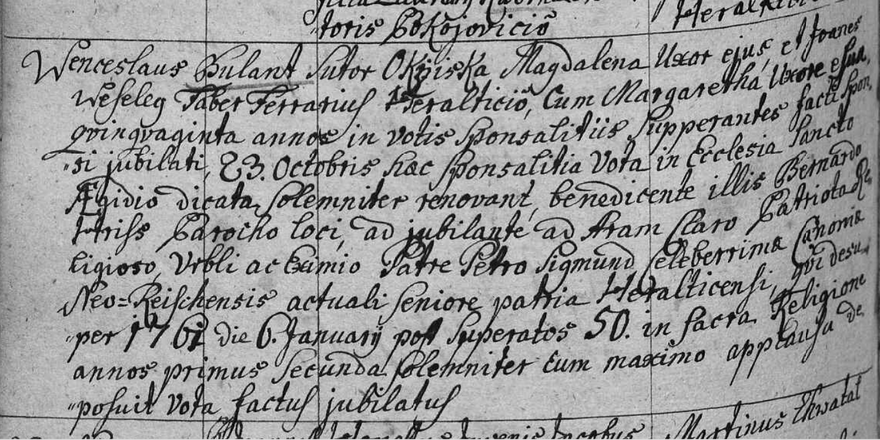 toris Pokojovicio Heralticio
Wenceslaus Bulant Sutor Okřiska, Magdalena Uxor ejus, et Joanes
Weseleg Faber Ferrarius Heralticiõ, Cum Margaretha Uxore sua,
qvinqvaginta annos in votis Sponsalitiis Supperantes facti Spon„
„si jubilati, 23. Octobris hæc Sponsalitia Vota in Ecclesia Sancto
Ægidio dicata, Solemniter renovant, benedicente illis Bernardo
Parocho loci, ad jubilante ad Aram Claro Patriota Re„
ligioso, Vrbli ac Eximio Patre Petro Sigmund Celeberrimæ Canoniæ
Neo=Reischensis actuali Seniore patria Heralticensi, qvi desu„
„per 1761 die 6. January post Superatos 50. in Sacra Religione
annos primus Secunda Solemniter Cum maximo applausu de„
„posuit Vota factus jubilatus
Martinus Chwatal